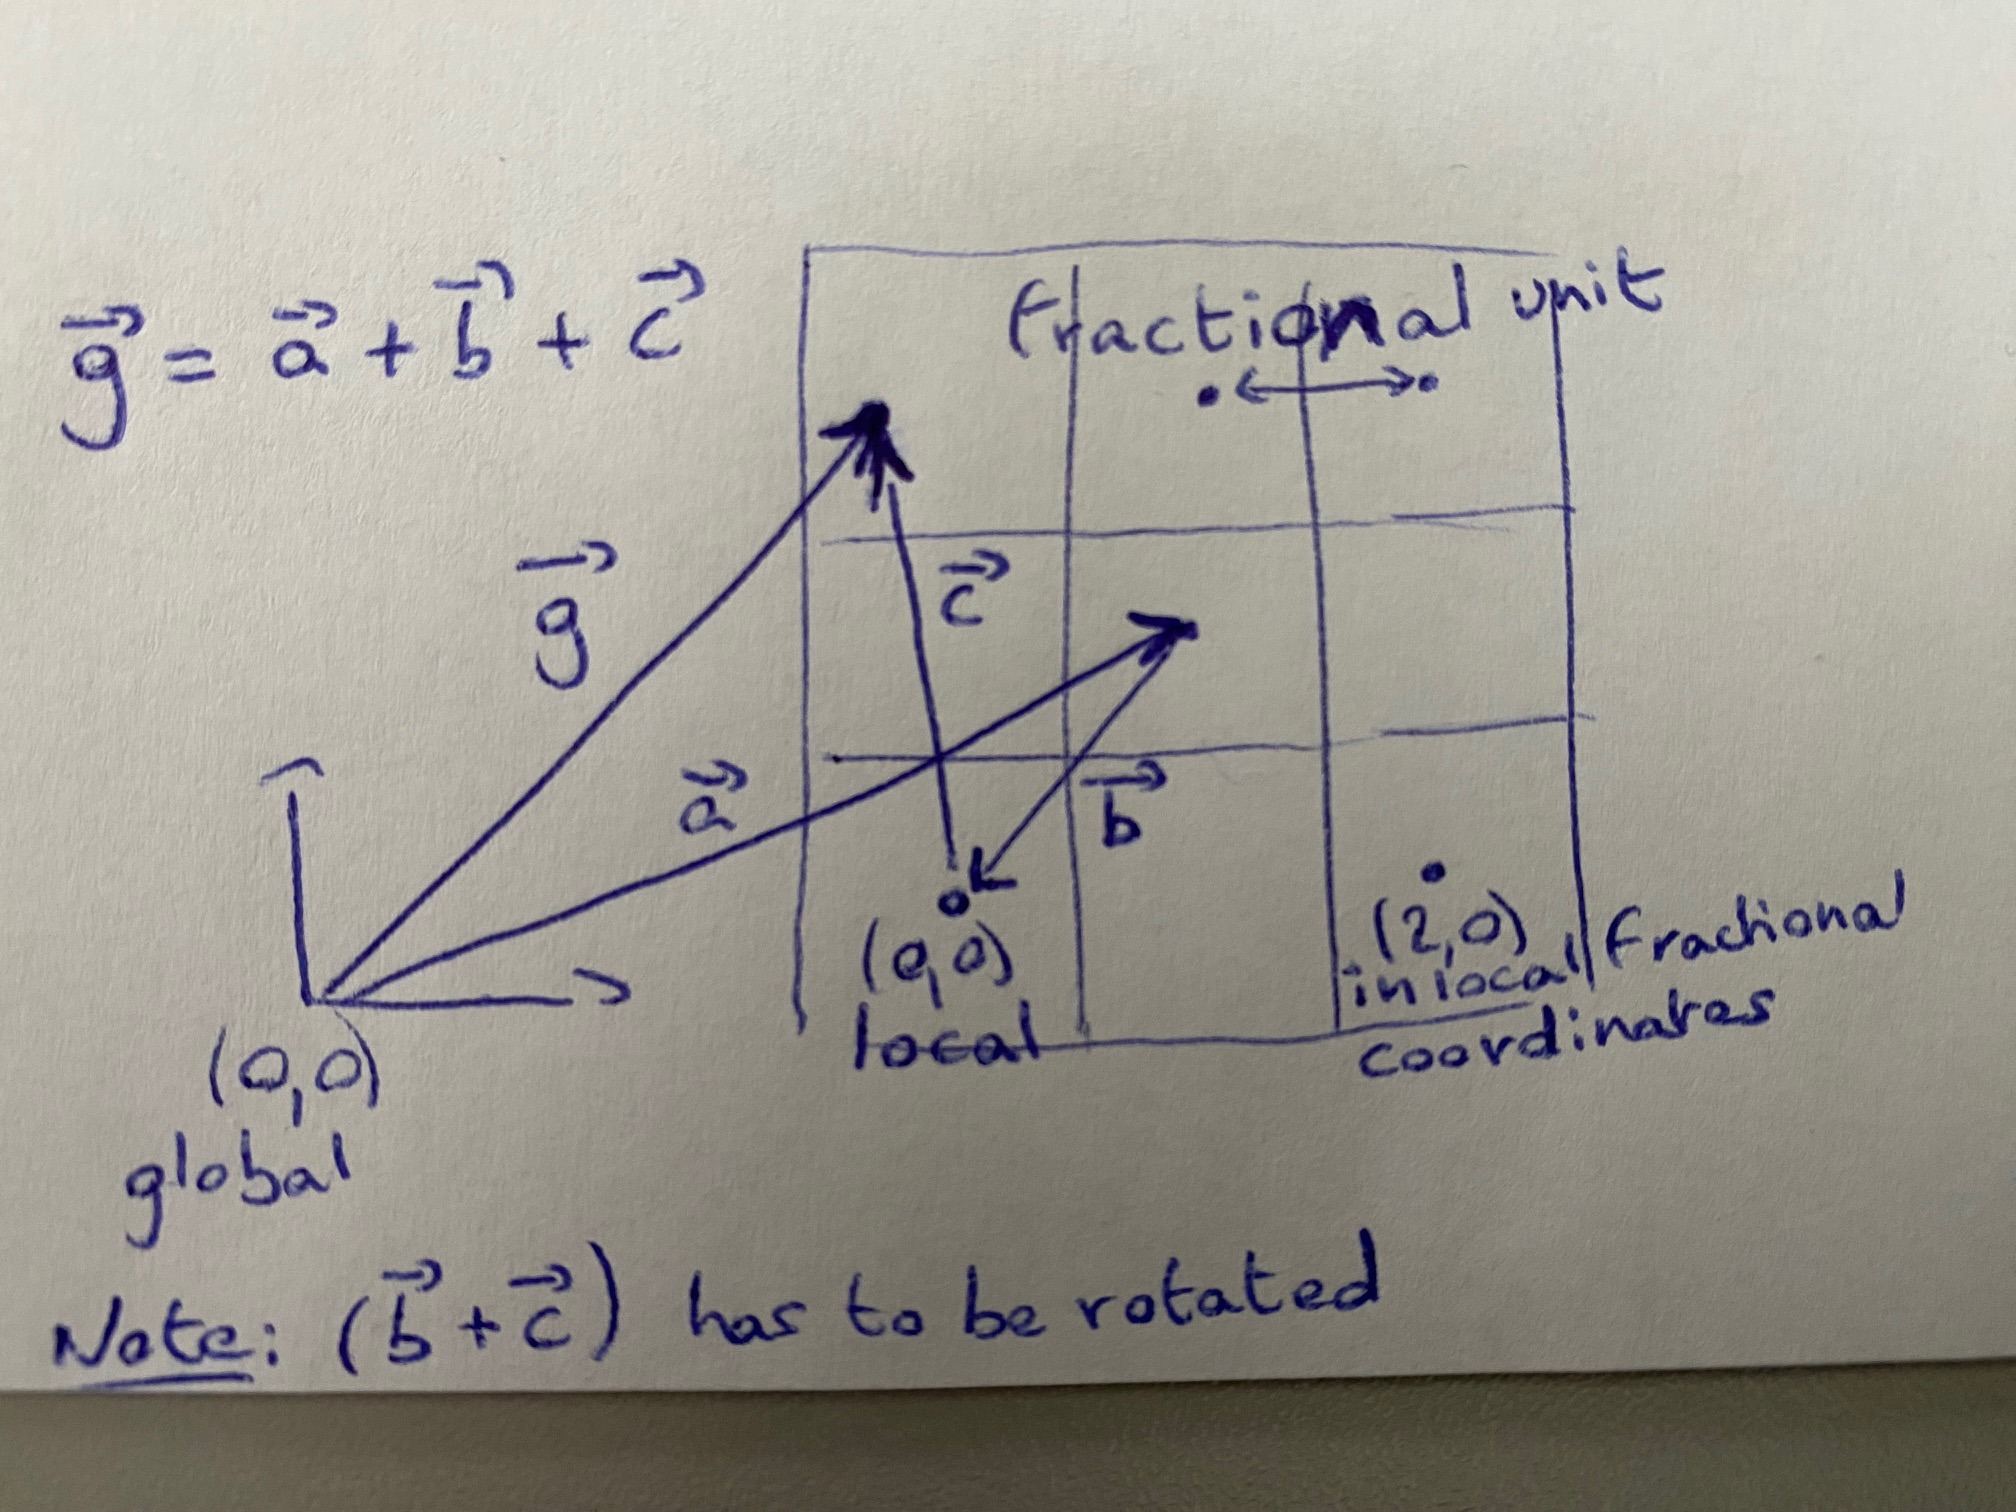 g⃗ = a⃗ + b⃗ + c⃗
fractional unit
g⃗
c⃗
a⃗
b⃗
(0,0)
local
(2,0)
in local fractional
coordinates
(0,0)
global
Note: (b⃗ + c⃗) has to be rotated